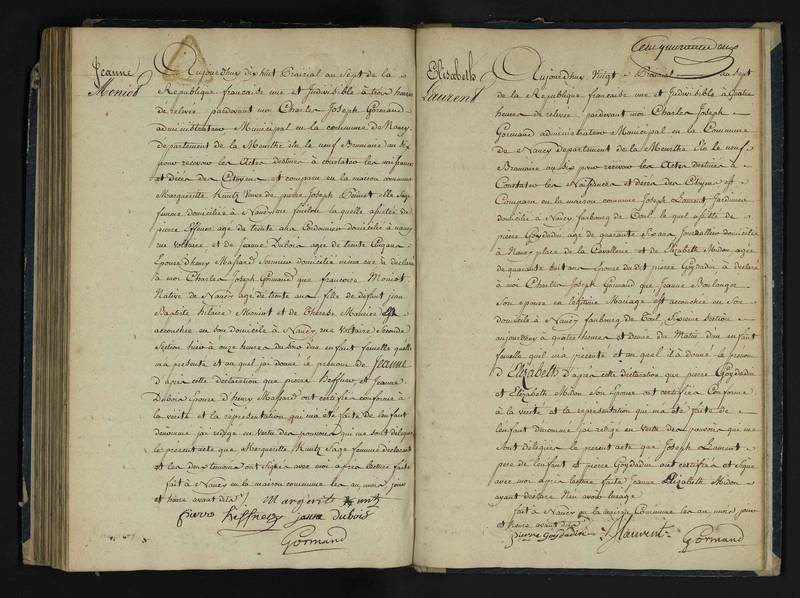 Jeanne
Moniot
Aujourd'huy dix huit Prairial au Sept de la
République française une et Indivisible à trois heures
de relevée pardevant moi Charles Joseph Gormand
administrateur Municipal en la commune de Nancy
departement de la Meurthe élu le neuf Brumaire an six
pour recevoir les Actes destinés à constater les naissances
et décès des Citoyens est comparu en la maison commune
Margueritte Kuntz Veuve de pierre Joseph Sage
femme domiciliée à Nancy laquelle assistée de
pierre age de trente ans Cordonnier domicilié à nancy
rue voltaire et de Jeanne Dubois age de trente
Epouse d'henry Massard domiciliée même rue a déclaré
à moi Charles Joseph Gormand que francoise Moniot
Native de Nancy age de trente ans fille de défunt jean
Baptiste hilaire Moniot et de Therese est
accouchée en son domicile à Nancy rue Voltaire Seconde
Section hier à onze heures du soir d'un enfant femelle quelle
ma présenté et au quel j'ai donné le prénom de Jeanne
d'après cette déclaration que pierre Keffner et Jeanne
Dubois épouse d'henry Massard ont certifiée conforme à
la vérité et la représentation qui ma été faite de l'enfant
denommé j'ai rédigé en vertu des pouvoirs qui me sont délégués
le présent acte que Marguerite Kuntz Sage femme déclarant
et les deux temoins ont signé avec moi après lecture faite
fait à Nancy en la maison commune les an mois jour
et heure avant dits /. Margerite Kuntz
pierre Keffner janne dubois
Gormand
Cent quarante deux
Elisabeth
Laurent
Aujourd'huy Vingt Prairial au sept
de la République française une et Indivisible à quatre
heures de relevée pardevant moi Charles Joseph
Gormand administrateur Municipal en la Commune
de Nancy departement de la Meurthe Élu le neuf
Brumaire an six pour recevoir les Actes destinés à
Constater les Naissances et décès des Citoyens est
Comparu en la maison commune Joseph Laurent Jardinier
domicilié à Nancy faubourg de Toul lequel assisté de
pierre Goydadin age de quarante Six ans Journallier domicilié
à Nancy place de la Cavallerie et de Elizabeth Midon agée
de quarante huit ans épouse du dit pierre Goydadin à déclaré
à moi Charles Joseph Gormand que Jeanne Boulanger
Son épouse en légitime Mariage est accouchée en Son
domicile à Nancy faubourg de Toul Sixieme Section
aujourdhuy à quatre heures et demie du Matin d'un enfant
femelle quil ma présenté et au quel il à donné le prenom
d'Elizabeth d'après cette déclaration que pierre Goydadin
et Elizabeth Midon Son Epouse ont certifiée Conforme
à la vérité et la représentation qui ma été faite de
l'enfant denommé j'ai rédigé en vertu des pouvoirs qui me
Sont délégués le présent acte que Joseph Laurent
pere de l'enfant et pierre Goydadin ont certifié et Signé
avec moi après lecture faite Elizabeth Midon
ayant déclaré n'en avoir l'usage
fait à Nancy en la maison Commune les an mois jour
et heure avant dits /.
pierre Goydadin J Laurent Gormand